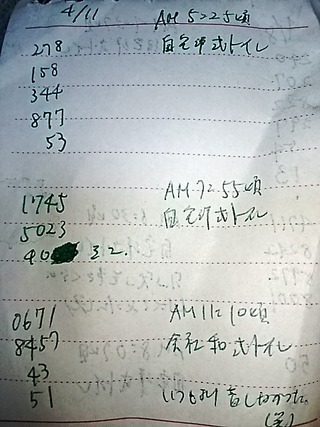 4/11 AM 5:25頃
278 自宅洋式トイレ
158
344
877
53
1745 AM 7:55頃
5023 自宅洋式トイレ
90 まで.
0671 AM 11:10頃
8457 会社和式トイレ
43
51 いつもより苦しかった。
(笑)